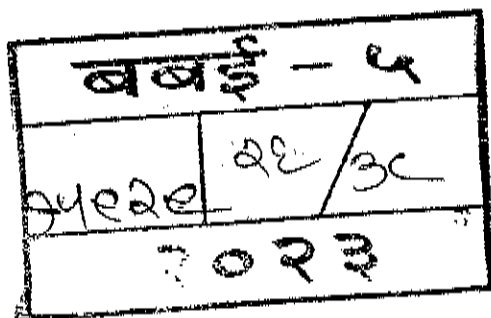 बबई - ५
१५९२९ २६/३८
२०२३